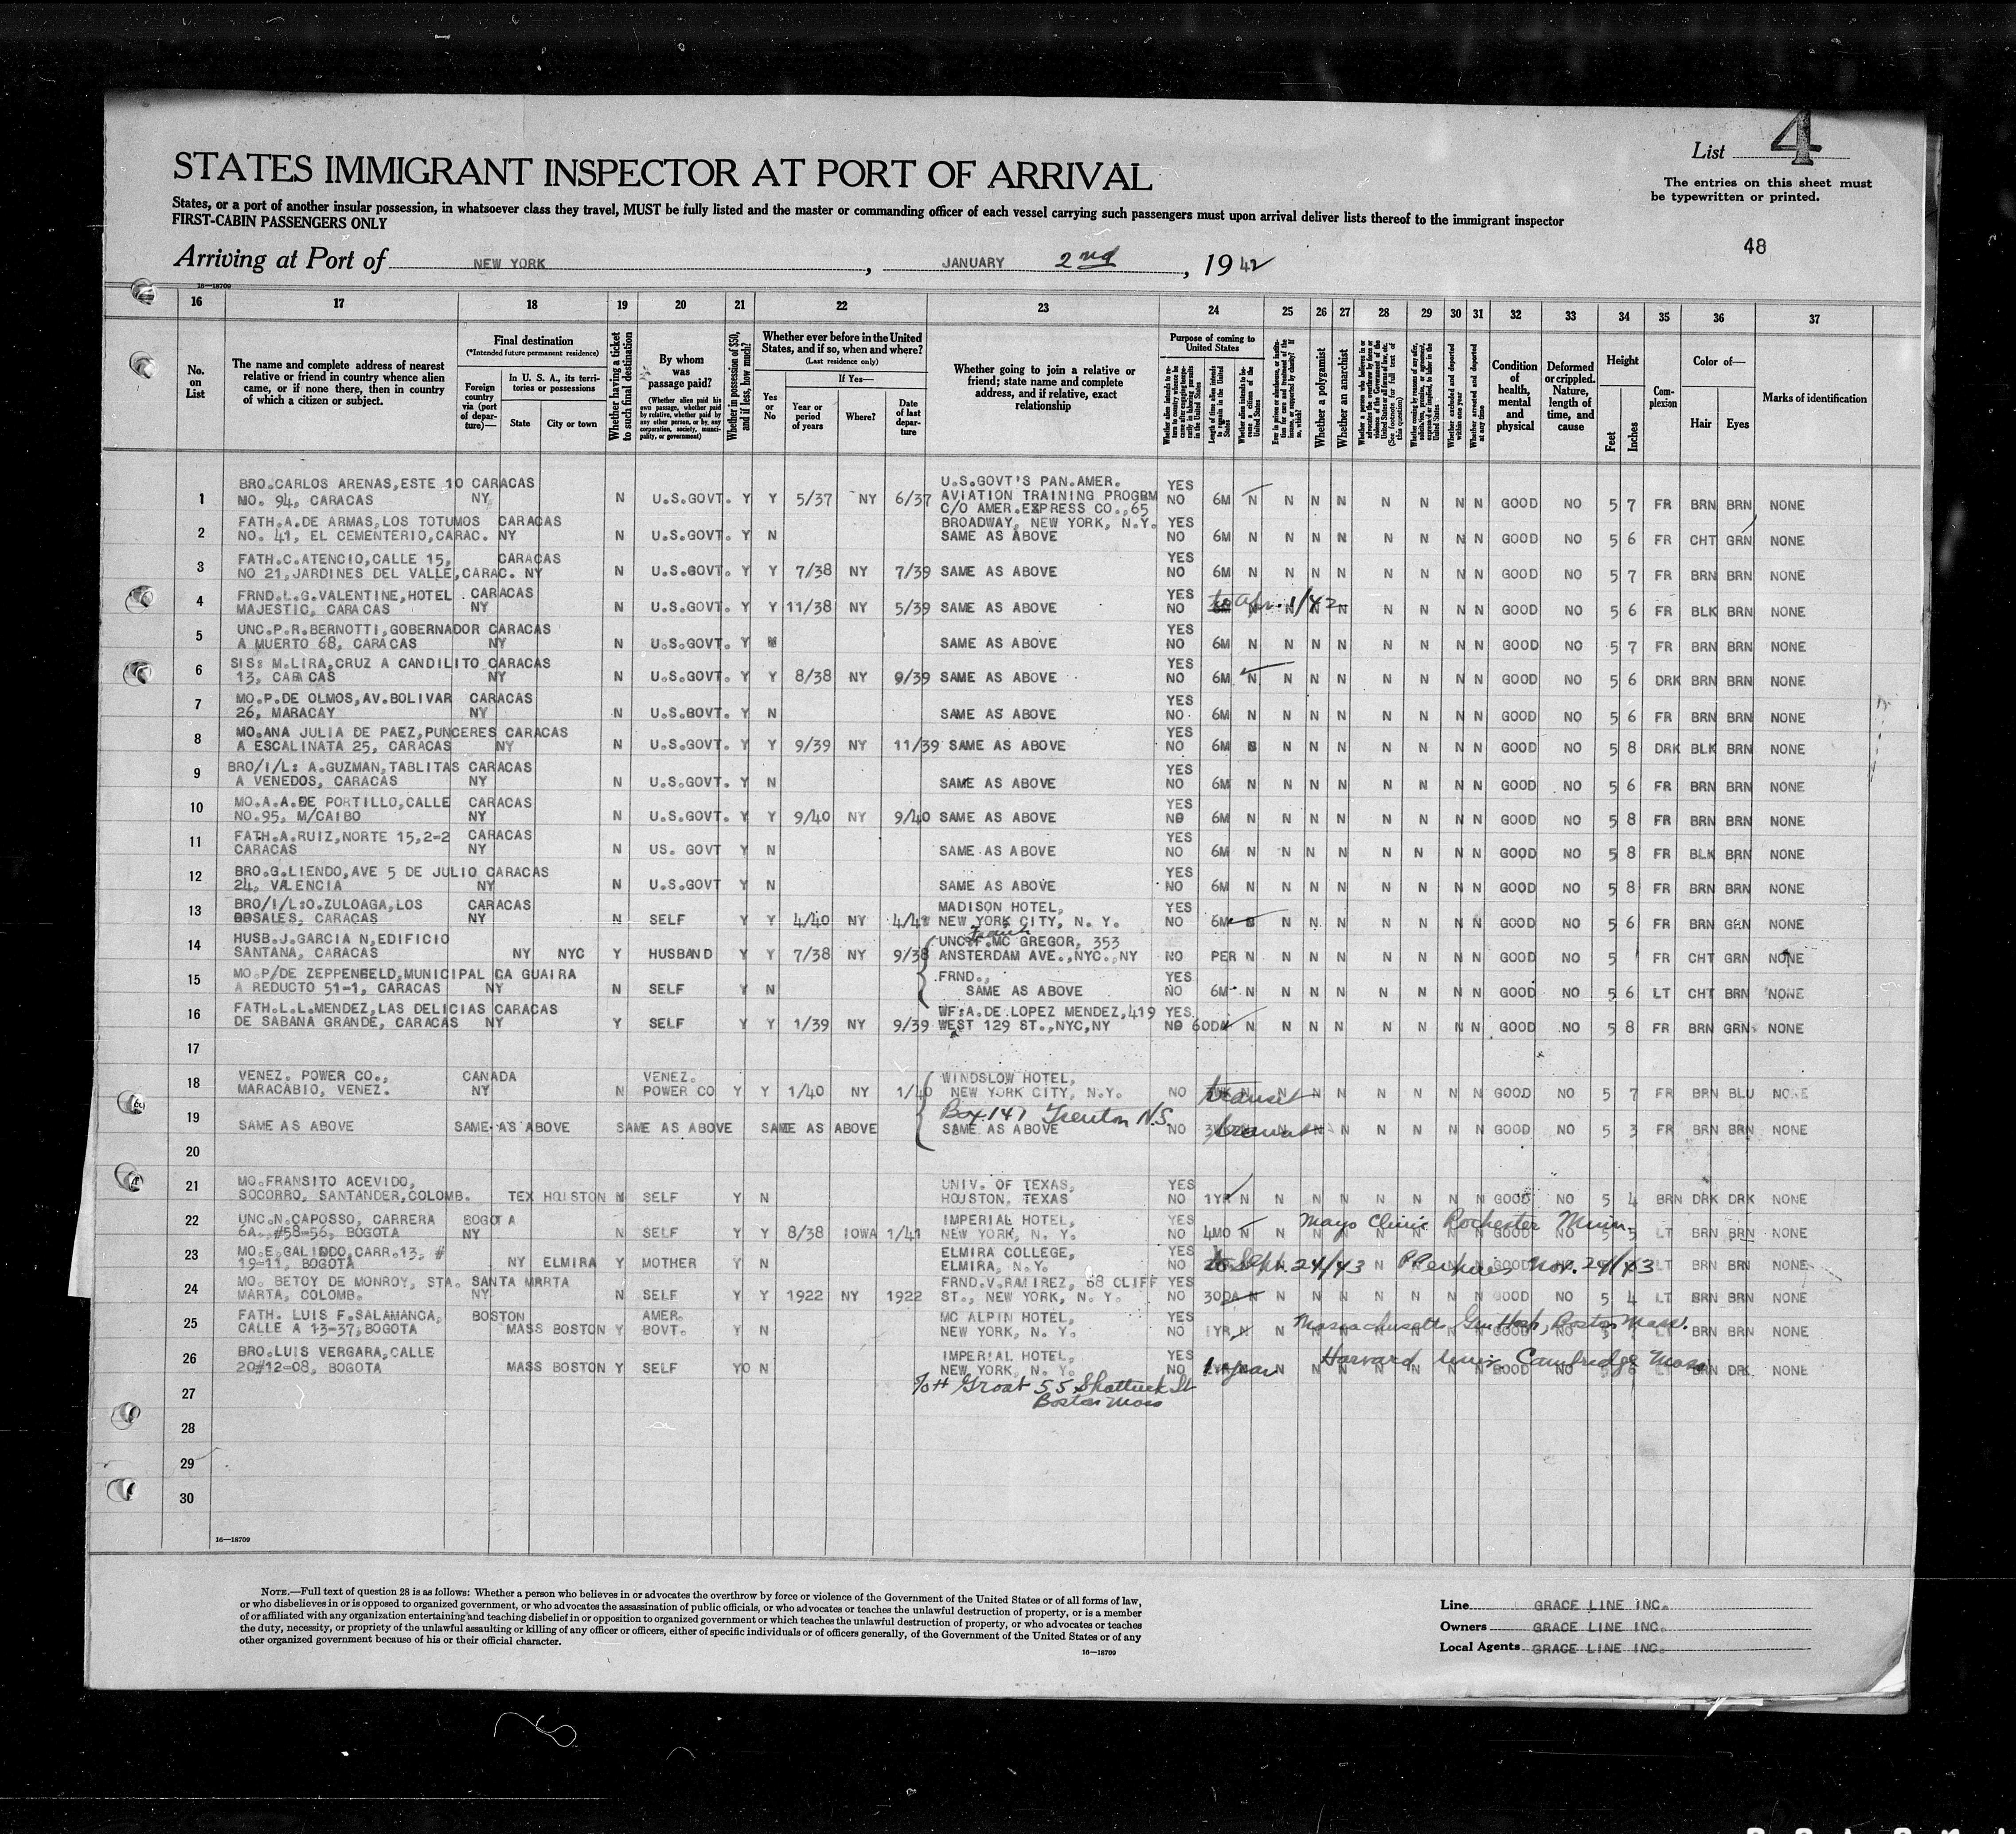 List 4
STATES IMMIGRANT INSPECTOR AT PORT OF ARRIVAL
The entries on this sheet must
be typewritten or printed.
States, or a port of another insular possession, in whatsoever class they travel, MUST be fully listed and the master or commanding officer of each vessel carrying such passengers must upon arrival deliver lists thereof to the immigrant inspector
FIRST-CABIN PASSENGERS ONLY
48
Arriving at Port of NEW YORK, JANUARY 2nd, 1942
16—18709
16 17 18 19 20 21 22 23 24 25 26 27 28 29 30 31 32 33 34 35 36 37
No. on List
The name and complete address of nearest relative or friend in country whence alien came, or if none there, then in country of which a citizen or subject.
Final destination
(*Intended future permanent residence)
Foreign country via (port of departure)—
In U. S. A., its territories or possessions
State City or town
Whether having a ticket to such final destination
By whom was passage paid?
(Whether alien paid his own passage, whether paid by relative, whether paid by any other person, or by any corporation, society, municipality, or government)
Whether in possession of $50, and if less, how much?
Whether ever before in the United States, and if so, when and where?
(Last residence only)
Yes or No
If Yes—
Year or period of years
Where?
Date of last departure
Whether going to join a relative or friend; state name and complete address, and if relative, exact relationship
Purpose of coming to United States
Length of time alien intends to remain in the United States
Whether a polygamist
Whether an anarchist
Whether excluded and deported within one year
Whether arrested and deported at any time
Condition of health, mental and physical
Deformed or crippled. Nature, length of time, and cause
Height
Feet Inches
Complexion
Color of—
Hair Eyes
Marks of identification
BRO.CARLOS ARENAS,ESTE 10 CARACAS U.S.GOVT'S PAN.AMER. YES
1 MO. 94, CARACAS NY N U.S.GOVT. Y Y 5/37 NY 6/37 AVIATION TRAINING PROGRM NO 6M N N N N N N N N GOOD NO 5 7 FR BRN BRN NONE
C/O AMER.EXPRESS CO.,65
FATH.A.DE ARMAS,LOS TOTUMOS CARACAS BROADWAY, NEW YORK, N.Y. YES
2 NO. 41, EL CEMENTERIO,CARAC. NY N U.S.GOVT. Y N SAME AS ABOVE NO 6M N N N N N N N N GOOD NO 5 6 FR CHT GRN NONE
FATH.C.ATENCIO,CALLE 15, CARACAS YES
3 NO 21,JARDINES DEL VALLE,CARAC. NY N U.S.GOVT. Y Y 7/38 NY 7/39 SAME AS ABOVE NO 6M N N N N N N N N GOOD NO 5 7 FR BRN BRN NONE
FRND.L.G.VALENTINE,HOTEL CARACAS YES
4 MAJESTIC, CARACAS NY N U.S.GOVT. Y Y 11/38 NY 5/39 SAME AS ABOVE NO to Apr. 1/42 N N N N N GOOD NO 5 6 FR BLK BRN NONE
UNC.P.R.BERNOTTI,GOBERNADOR CARACAS YES
5 A MUERTO 68, CARACAS NY N U.S.GOVT. Y N SAME AS ABOVE NO 6M N N N N N N N N GOOD NO 5 7 FR BRN BRN NONE
SIS: M.LIRA,CRUZ A CANDILITO CARACAS YES
6 13, CARACAS NY N U.S.GOVT. Y Y 8/38 NY 9/39 SAME AS ABOVE NO 6M N N N N N N N N GOOD NO 5 6 DRK BRN BRN NONE
MO.P.DE OLMOS,AV.BOLIVAR CARACAS YES
7 26, MARACAY NY N U.S.BOVT. Y N SAME AS ABOVE NO. 6M N N N N N N N N GOOD NO 5 6 FR BRN BRN NONE
MO.ANA JULIA DE PAEZ,PUNCERES CARACAS YES
8 A ESCALINATA 25, CARACAS NY N U.S.GOVT. Y Y 9/39 NY 11/39 SAME AS ABOVE NO 6M N N N N N N N GOOD NO 5 8 DRK BLK BRN NONE
BRO/I/L: A.GUZMAN,TABLITAS CARACAS YES
9 A VENEDOS, CARACAS NY N U.S.GOVT. Y N SAME AS ABOVE NO 6M N N N N N N N N GOOD NO 5 6 FR BRN BRN NONE
MO.A.A.DE PORTILLO,CALLE CARACAS YES
10 NO.95, M/CAIBO NY N U.S.GOVT. Y Y 9/40 NY 9/40 SAME AS ABOVE NO 6M N N N N N N N N GOOD NO 5 8 FR BRN BRN NONE
FATH.A.RUIZ,NORTE 15,2-2 CARACAS YES
11 CARACAS NY N US. GOVT Y N SAME AS ABOVE NO 6M N N N N N N N N GOOD NO 5 8 FR BLK BRN NONE
BRO.G.LIENDO,AVE 5 DE JULIO CARACAS YES
12 24, VALENCIA NY N U.S.GOVT Y N SAME AS ABOVE NO 6M N N N N N N N N GOOD NO 5 8 FR BRN BRN NONE
BRO/I/L:O.ZULOAGA,LOS CARACAS MADISON HOTEL, YES
13 ROSALES, CARACAS NY N SELF Y Y 4/40 NY NEW YORK CITY, N. Y. NO 6M N N N N N N N GOOD NO 5 6 FR BRN GRN NONE
HUSB.J.GARCIA N,EDIFICIO UNC:F.MC GREGOR, 353
14 SANTANA, CARACAS NY NYC Y HUSBAND Y Y 7/38 NY 9/38 AMSTERDAM AVE.,NYC.,NY NO PER N N N N N N N N GOOD NO 5 FR CHT GRN NONE
MO.P/DE ZEPPENBELD,MUNICIPAL GA GUAIRA FRND., YES
15 A REDUCTO 51-1, CARACAS NY N SELF Y N SAME AS ABOVE NO 6M N N N N N N N N GOOD NO 5 6 LT CHT BRN NONE
FATH.L.L.MENDEZ,LAS DELICIAS CARACAS WF:A.DE LOPEZ MENDEZ,419 YES
16 DE SABANA GRANDE, CARACAS NY Y SELF Y Y 1/39 NY 9/39 WEST 129 ST.,NYC,NY NO 60DA N N N N N N N N GOOD NO 5 8 FR BRN GRN NONE
17
VENEZ. POWER CO., CANADA VENEZ. WINDSLOW HOTEL,
18 MARACABIO, VENEZ. NY N POWER CO Y Y 1/40 NY 1/40 NEW YORK CITY, N.Y. NO transit N N N N N N GOOD NO 5 7 FR BRN BLU NONE
Box 147 Trenton N.S.
19 SAME AS ABOVE SAME AS ABOVE SAME AS ABOVE SAME AS ABOVE SAME AS ABOVE NO transit N N N N N GOOD NO 5 3 FR BRN BRN NONE
20
MO.FRANSITO ACEVIDO, UNIV. OF TEXAS, YES
21 SOCORRO, SANTANDER,COLOMB. TEX HOUSTON N SELF Y N HOUSTON, TEXAS NO 1YR N N N N N N N N GOOD NO 5 4 BRN DRK DRK NONE
UNC.N.CAPOSSO, CARRERA BOGOTA IMPERIAL HOTEL, YES Mayo Clinic Rochester Minn.
22 6A. #58-56, BOGOTA NY N SELF Y Y 8/38 IOWA 1/41 NEW YORK, N. Y. NO 4MO N N N N N N N N GOOD NO 5 5 LT BRN BRN NONE
MO.E.GALINDO,CARR.13, # ELMIRA COLLEGE, YES
23 19-11, BOGOTA NY ELMIRA Y MOTHER Y N ELMIRA, N.Y. NO to Sept. 24/43 Nov. 24/43 LT BRN BRN NONE
MO. BETOY DE MONROY, STA. SANTA MARTA FRND.V.RAMIREZ, 68 CLIFF YES
24 MARTA, COLOMB. NY N SELF Y Y 1922 NY 1922 ST., NEW YORK, N. Y. NO 30DA N N N N N N N N GOOD NO 5 4 LT BRN BRN NONE
FATH. LUIS F.SALAMANCA, BOSTON AMER. MC ALPIN HOTEL, YES Massachusetts Gen Hosp, Boston Mass.
25 CALLE A 13-37,BOGOTA MASS BOSTON Y BOVT. Y N NEW YORK, N. Y. NO 1YR N N N N N N N N GOOD NO 5 LT BRN BRN NONE
BRO.LUIS VERGARA,CALLE IMPERIAL HOTEL, YES Harvard Univ. Cambridge Mass
26 20#12-08, BOGOTA MASS BOSTON Y SELF YO N NEW YORK, N. Y. NO 1 year N N N N N N GOOD NO BRN DRK NONE
27 Groat 55 Shattuck St
Boston Mass
28
29
30
16—18709
NOTE.—Full text of question 28 is as follows: Whether a person who believes in or advocates the overthrow by force or violence of the Government of the United States or of all forms of law,
or who disbelieves in or is opposed to organized government, or who advocates the assassination of public officials, or who advocates or teaches the unlawful destruction of property, or is a member
of or affiliated with any organization entertaining and teaching disbelief in or opposition to organized government or which teaches the unlawful destruction of property, or who advocates or teaches
the duty, necessity, or propriety of the unlawful assaulting or killing of any officer or officers, either of specific individuals or of officers generally, of the Government of the United States or of any
other organized government because of his or their official character.
16—18709
Line GRACE LINE INC.
Owners GRACE LINE INC.
Local Agents GRACE LINE INC.